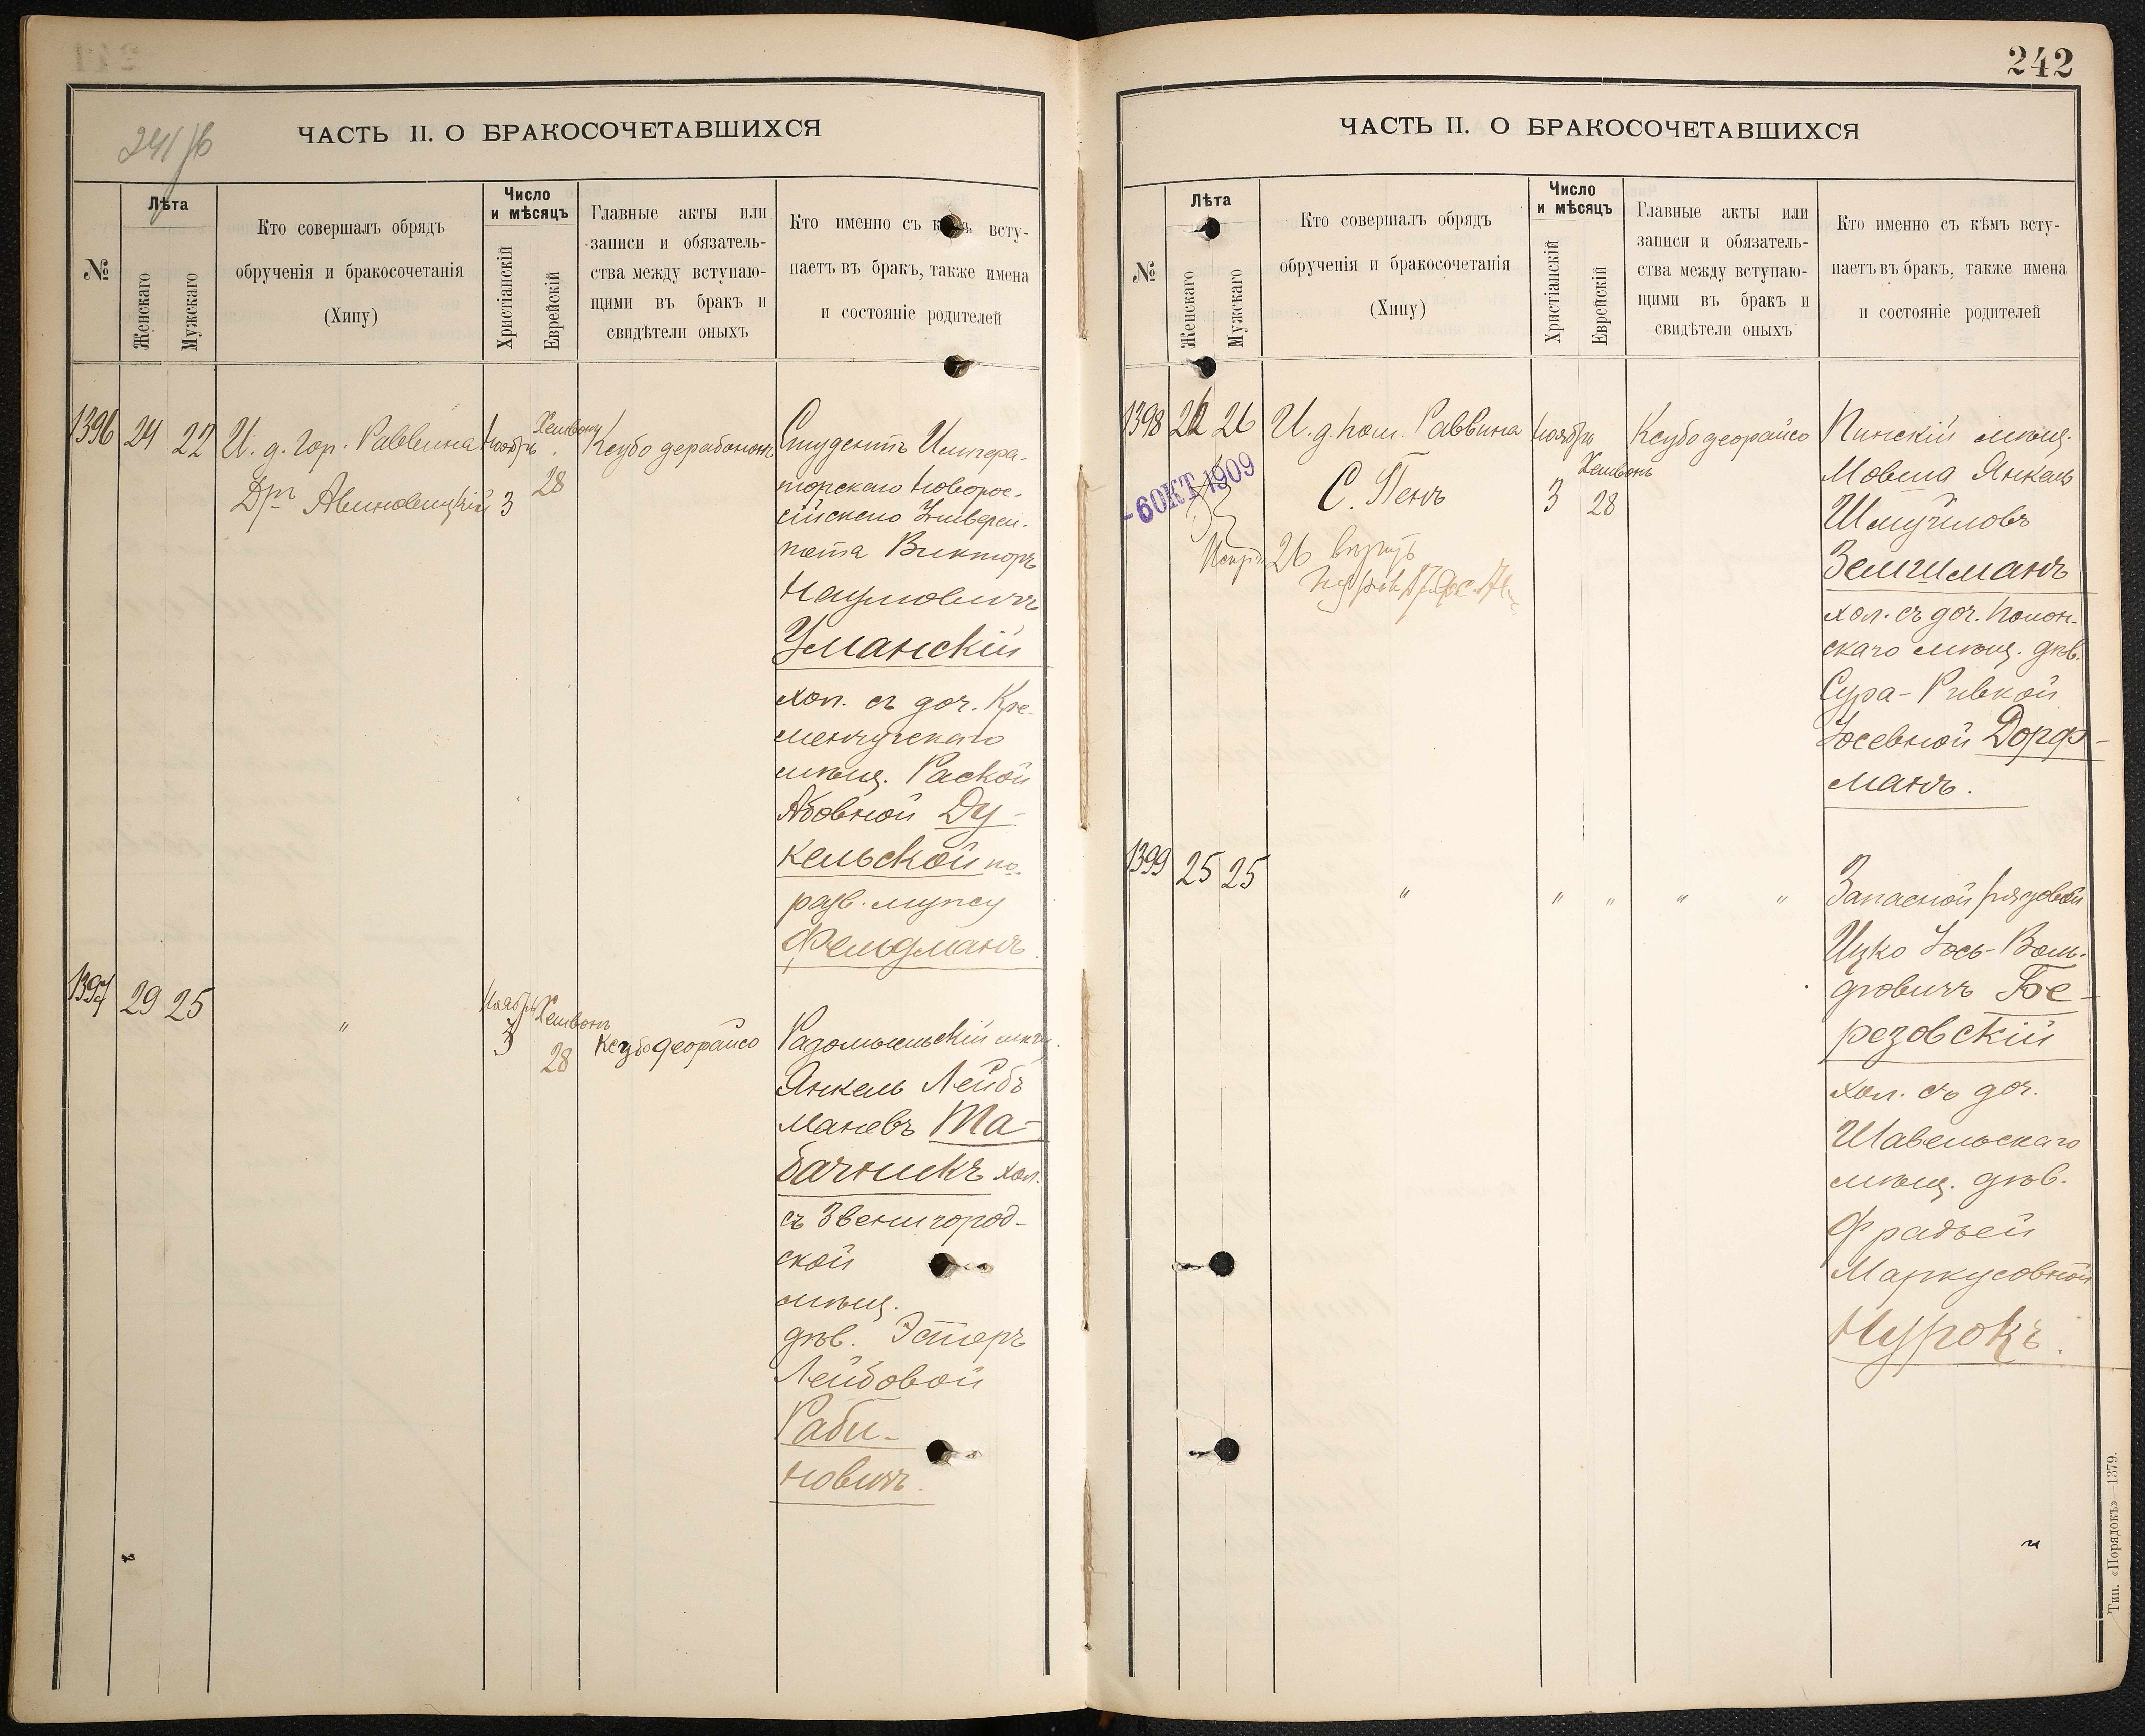 242
241/б
ЧАСТЬ II. О БРАКОСОЧЕТАВШИХСЯ
№
Лѣта
Женскаго
Мужскаго
Кто совершалъ обрядъ
обрученія и бракосочетанія
(Хипу)
Число
и мѣсяцъ
Христіанскій
Еврейскій
Главные акты или
записи и обязатель-
ства между вступаю-
щими въ бракъ и
свидѣтели оныхъ
Кто именно съ кѣмъ всту-
паетъ въ бракъ, также имена
и состояніе родителей
1396
24
22
И. д. Гор. Раввина
Др. Авиновицкій
Ноябрь
3
Хешвонъ
28
Ксубо дерабононъ
Студентъ Импера-
торскаго Новорос-
сійскаго Универси-
тета Викторъ
Наумовичъ
Уманскій
хол. съ доч. Кре-
менчугскаго
мѣщ. Раской
Абовной Ду-
кельской по
разв. мужу
Фельдманъ.
1397
29
25
"
Ноябрь
3
Хешвонъ
28
Ксубо деорайсо
Радомысльскій мѣщ.
Янкель Лейбъ
Маневъ Та-
бачникъ хол.
съ Звенигород-
ской
мѣщ.
дѣв. Эстеръ
Лейбовой
Раби-
новичъ.
ЧАСТЬ II. О БРАКОСОЧЕТАВШИХСЯ
№
Лѣта
Женскаго
Мужскаго
Кто совершалъ обрядъ
обрученія и бракосочетанія
(Хипу)
Число
и мѣсяцъ
Христіанскій
Еврейскій
Главные акты или
записи и обязатель-
ства между вступаю-
щими въ бракъ и
свидѣтели оныхъ
Кто именно съ кѣмъ всту-
паетъ въ бракъ, также имена
и состояніе родителей
1398
26
И. д. пом. Раввина
С. Пенъ
Ноябрь
3
Хешвонъ
28
Ксубо деорайсо
-6 ОКТ 1909
26
Пинскій мѣщ.
Мовша Янкель
Шмуиловъ
Зелигманъ
хол. съ доч. Полон-
скаго мѣщ. дѣв.
Сура-Ривкой
Іосевной Дорф-
манъ.
1399
25
25
" " " " "
Запасной рядовой
Ицко Іось-Воль-
фовичъ Бе-
резовскій
хол. съ доч.
Шавельскаго
мѣщ. дѣв.
Фрадьей
Маркусовной
Нурокъ.
Тип. «Порядокъ»—1379.